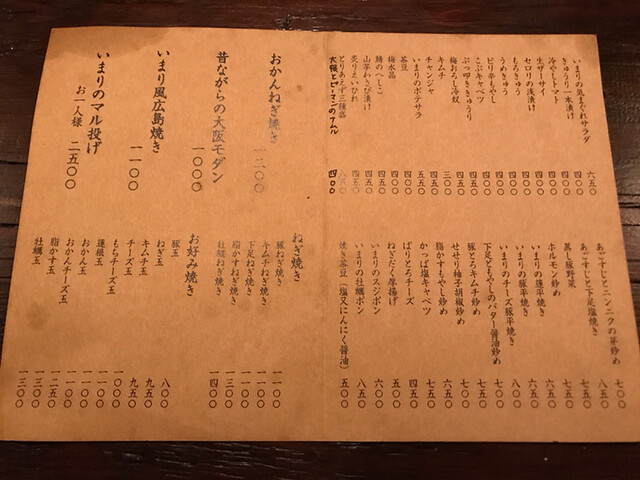 いまりの気まぐれサラダ 六五〇
きゅうり一本漬け 四〇〇
冷やしトマト 四〇〇
生ザーサイ 四〇〇
セロリの浅漬け 四〇〇
もろきゅう 四〇〇
うめきゅう 四〇〇
ピリ辛もやし 四〇〇
こぶキャベツ 四〇〇
ぶっ叩ききゅうり 四五〇
梅おろし冷奴 四五〇
キムチ 三〇〇
チャンジャ 四五〇
いまりのポテサラ 五五〇
茶豆 四五〇
梅水晶 四五〇
鯖のへしこ 四五〇
山芋わさび漬け 四五〇
炙りえいひれ 四五〇
とりあえず三種盛 八五〇
大根とピーマンのナムル 四〇〇
あごすじとニンニクの芽炒め 七〇〇
あごすじと下足塩焼き 八五〇
蒸し豚野菜 七五〇
ホルモン炒め 七五〇
いまりの蓮平焼き 六五〇
いまりの豚平焼き 六五〇
いまりのチーズ豚平焼き 八〇〇
下足ともやしのバター醤油炒め 七〇〇
豚とろキムチ炒め 七五〇
せせり柚子胡椒炒め 七〇〇
脂かすもやし炒め 六五〇
かっぱ塩キャベツ 七五〇
ぱりとろチーズ 四五〇
ねぎだく厚揚げ 五〇〇
いまりのスジポン 六〇〇
いまりの牡蠣ポン 八五〇
焼き茶豆(塩又にんにく醤油) 五〇〇
おかんねぎ焼き 一二〇〇
昔ながらの大阪モダン 一〇〇〇
いまり風広島焼き 一一〇〇
いまりのマル投げ
お一人様 二五〇〇
ねぎ焼き
豚ねぎ焼き 一一〇〇
キムチねぎ焼き 一一〇〇
下足ねぎ焼き 一一〇〇
脂かすねぎ焼き 一三〇〇
牡蠣ねぎ焼き 一四〇〇
お好み焼き
豚玉 八〇〇
ねぎ玉 九五〇
キムチ玉 九五〇
チーズ玉 九五〇
もちチーズ玉 一〇〇〇
蓮根玉 一一〇〇
おかん玉 一一〇〇
おかんチーズ玉 一二五〇
脂かす玉 一三〇〇
牡蠣玉 一三〇〇